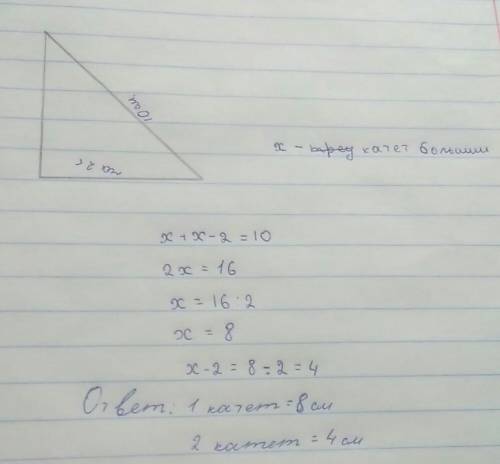 10см
на 2
x - катет больший
x + x - 2 = 10
2x = 16
x = 16 : 2
x = 8
x - 2 = 8 ÷ 2 = 4
Ответ: 1 катет = 8 см
2 катет = 4 см